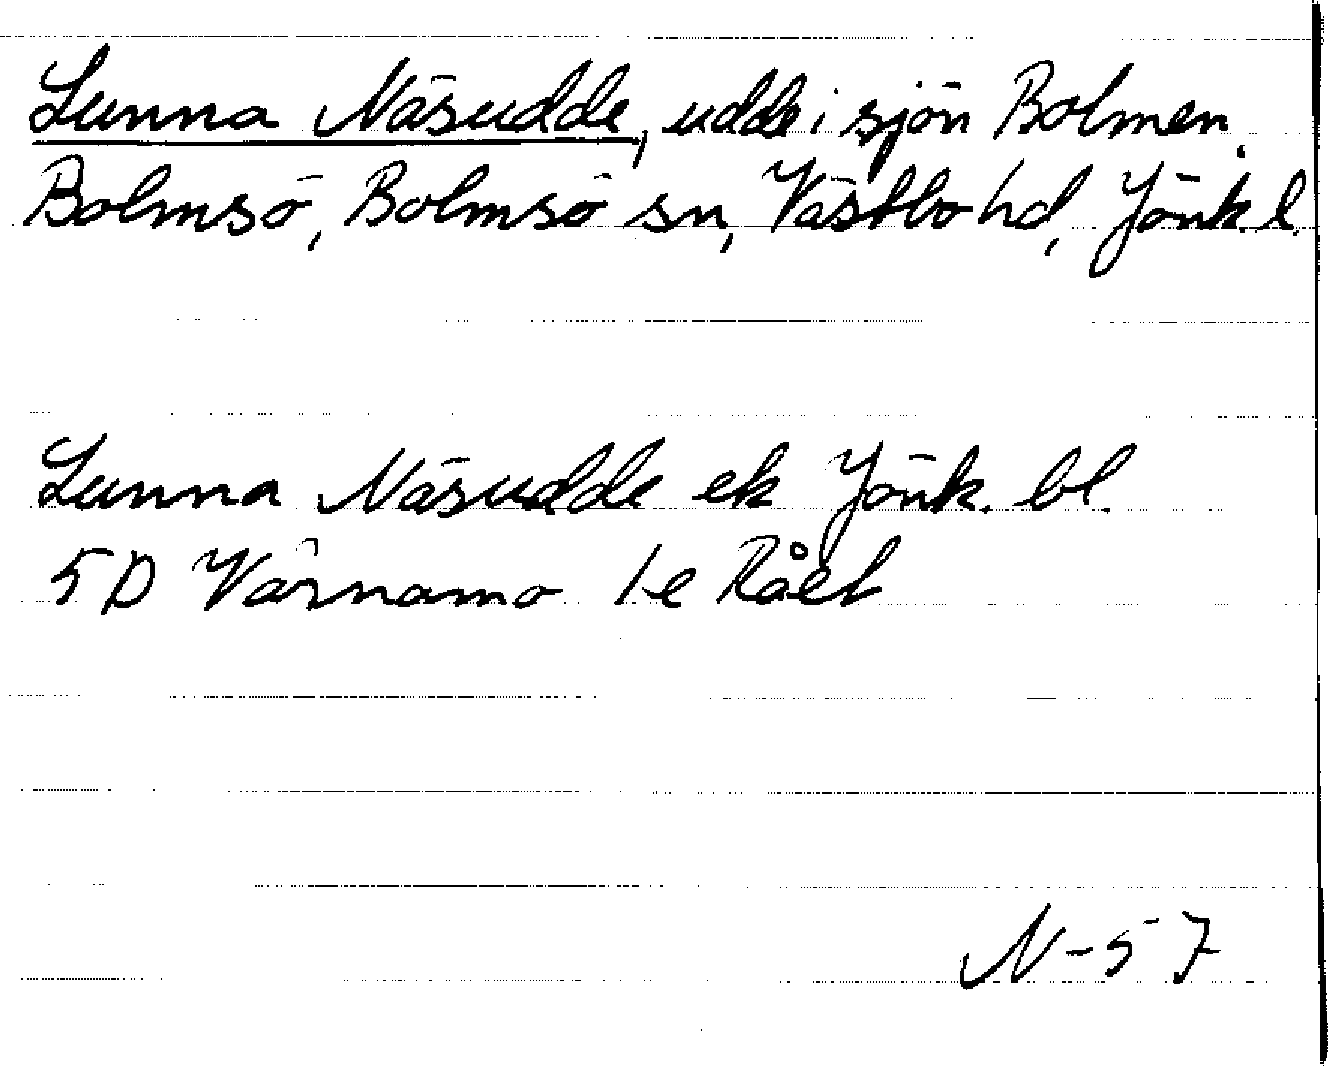 Lunna Näsudde, udde i sjön Bolmen.
Bolmsö, Bolmsö sn, Västbo hd, Jönk.l.
Lunna Näsudde ek Jönk. bl.
5D Värnamo 1e Rået
N-57